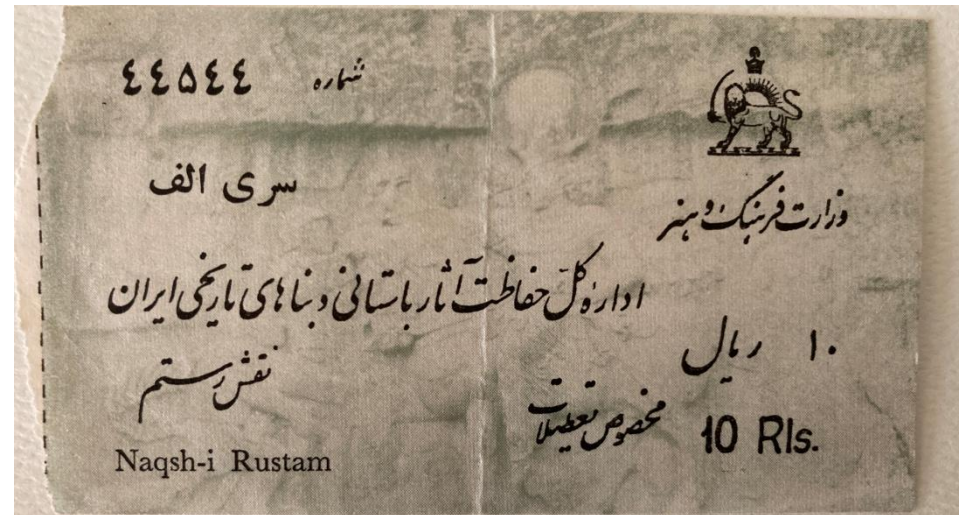 شماره ٤٤٥٤٤
سری الف
وزارت فرهنگ و هنر
اداره کل حفاظت آثار باستانی و بناهای تاریخی ایران
۱۰ ریال
نقش رستم
مخصوص تعطیلات
10 Rls.
Naqsh-i Rustam